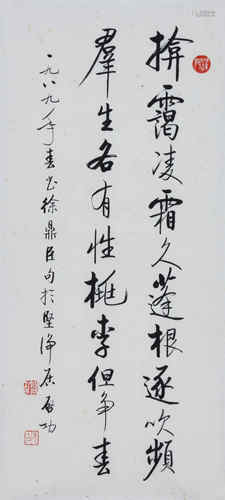 揜靄凌霜久蓬根逐吹頻
羣生各有性桃李但争春
一九八九年春书徐鼎臣句於堅净居 启功